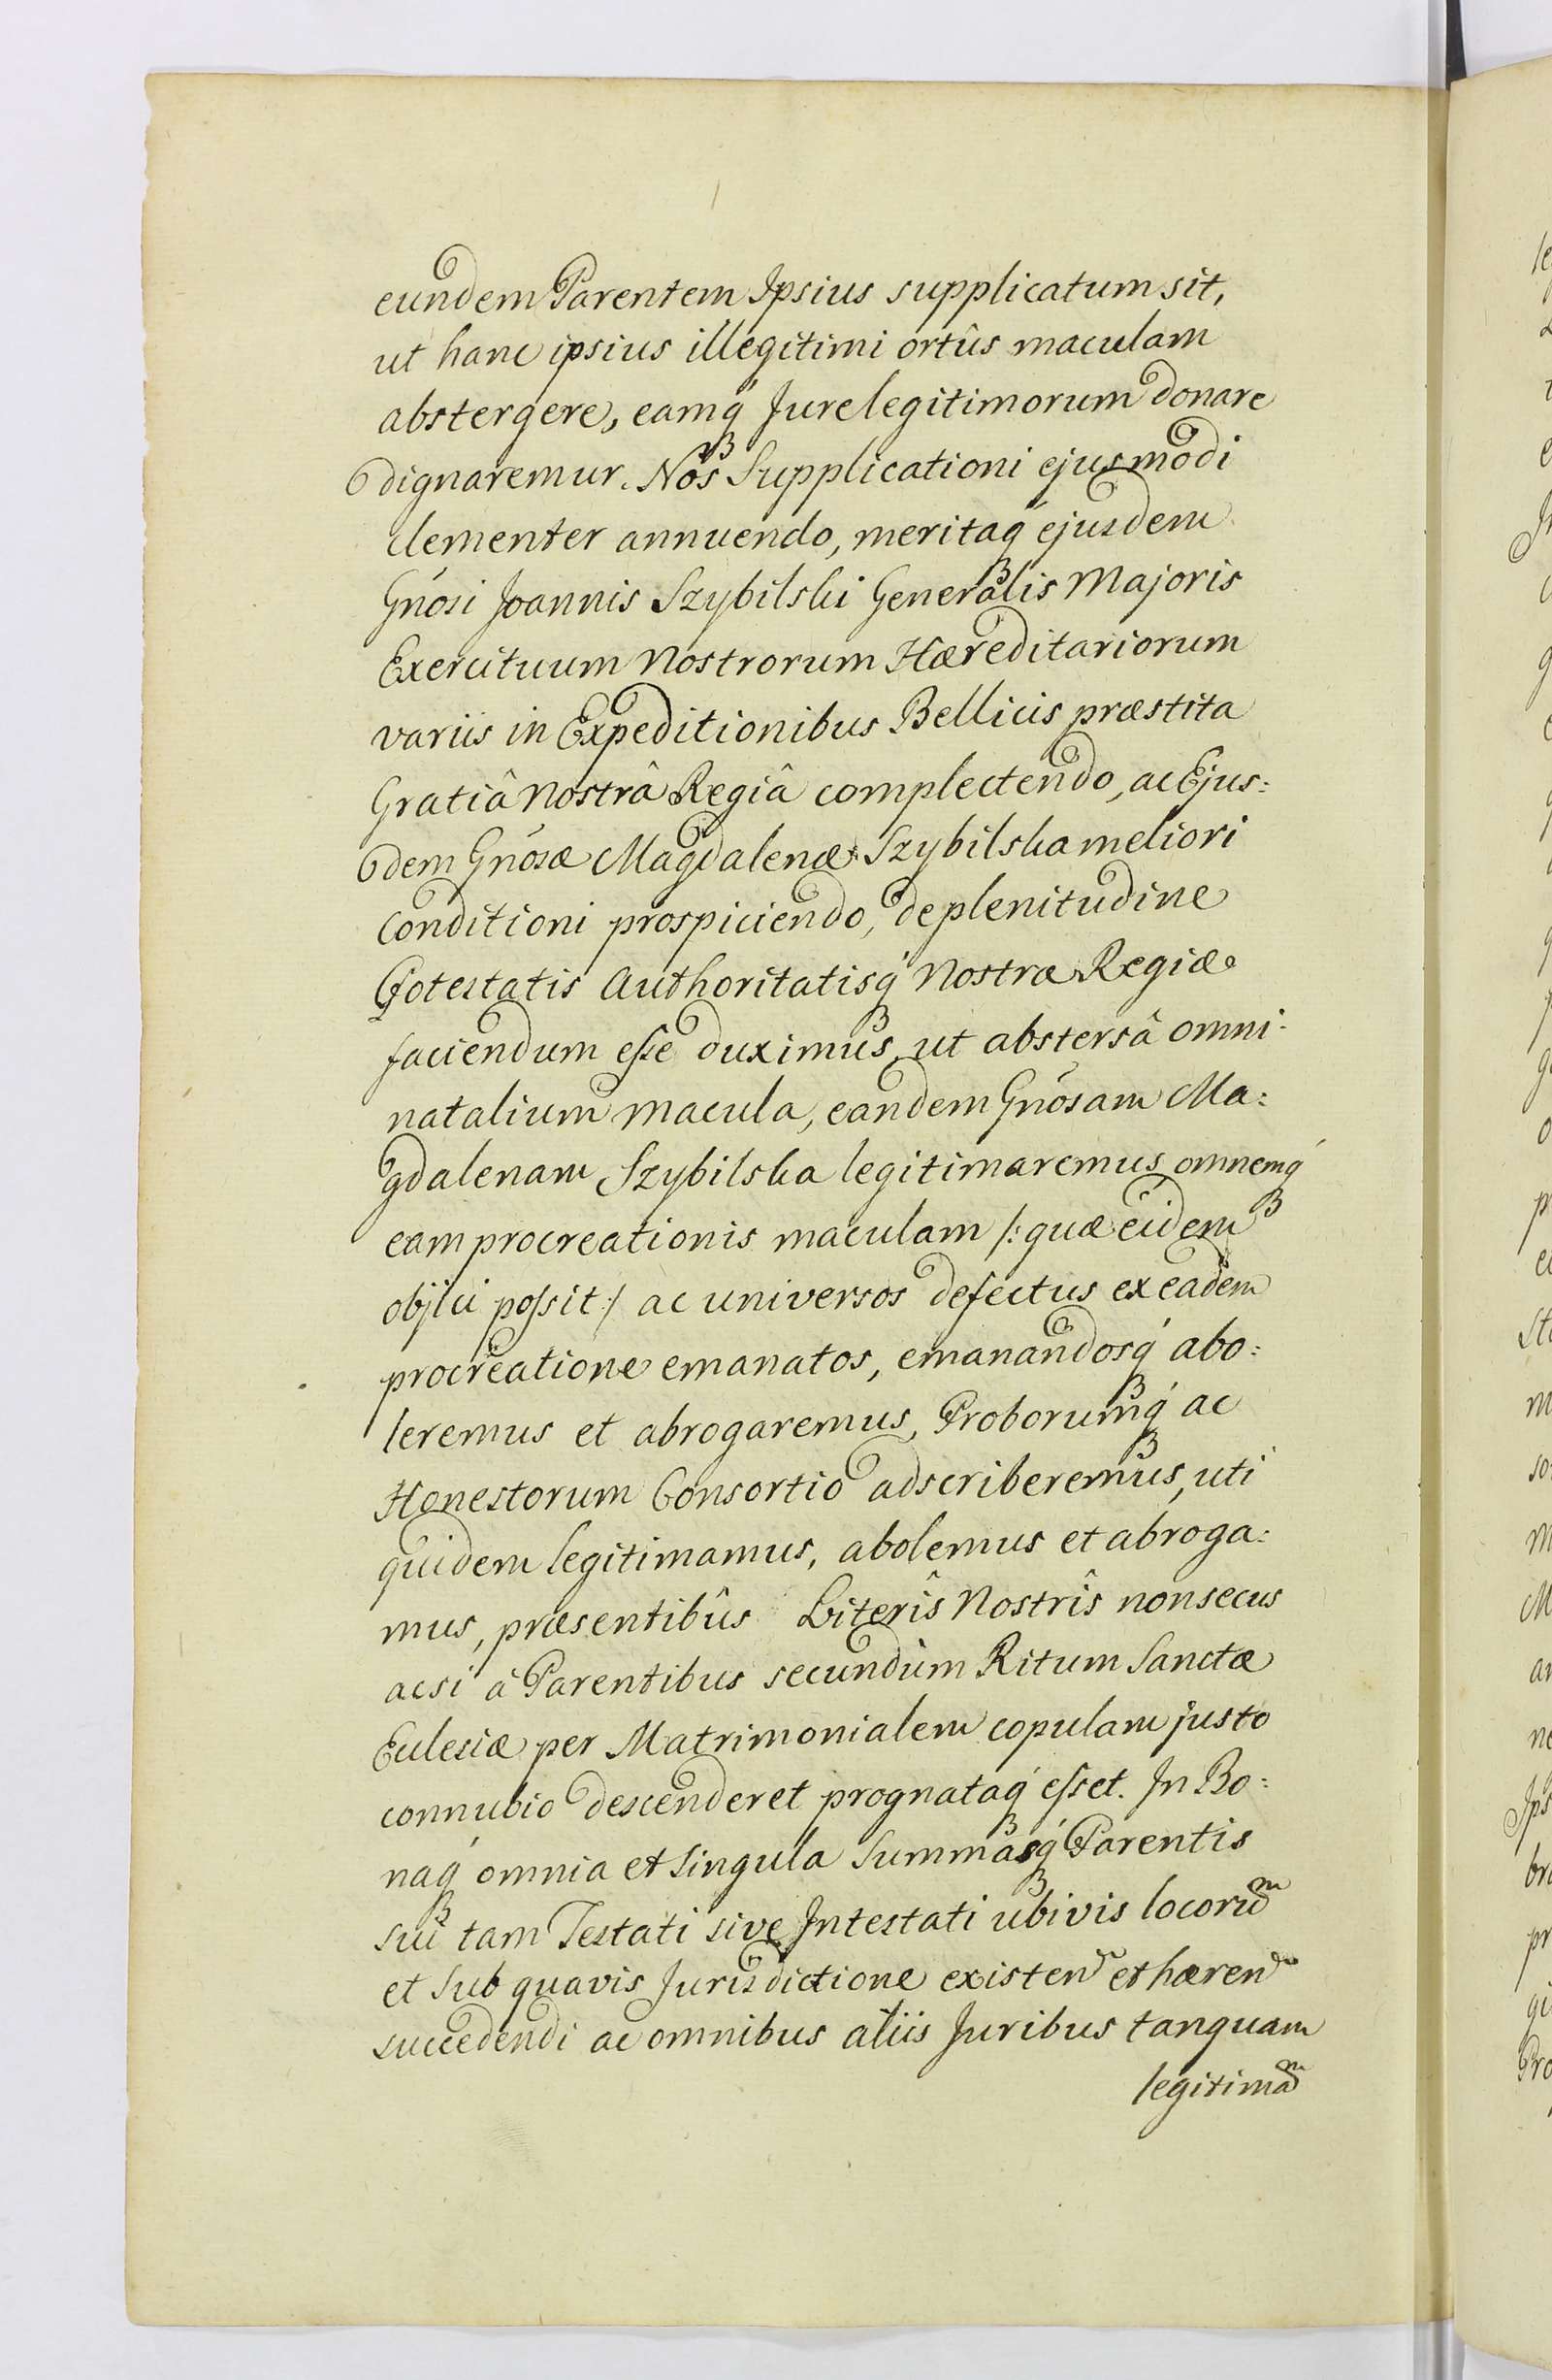 eundem Parentem Ipsius supplicatum sit,
ut hanc ipsius illegitimi ortûs maculam
abstergere, eamq́ꝫ Jure legitimorum donare
dignaremur. Nos Supplicationi ejusmodi
clementer annuendo, meritaq́ꝫ ejusdem
Gnosi Joannis Szybilski Generalis Majoris
Exercituum Nostrorum Hæreditariorum
variis in Expeditionibus Bellicis præstita
Gratiâ Nostrâ Regiâ complectendo, ac Ejus:
dem Gnosæ Magdalenæ Szybilska meliori
Conditioni prospiciendo, de plenitudine
Potestatis Authoritatisq́ꝫ Nostræ Regiæ
faciendum esse duximus, ut abstersâ omni
natalium macula, eandem Gnosam Ma:
gdalenam Szybilska legitimaremus, omnemq́ꝫ
eam procreationis maculam /: quæ eidem
objici possit :/ ac universos defectus ex eadem
procreatione emanatos, emanandosq́ꝫ abo:
leremus et abrogaremus, Proborumq́ꝫ ac
Honestorum Consortio adscriberemus, uti
quidem legitimamus, abolemus et abroga:
mus, præsentibûs Literîs Nostrîs non secus
ac si à Parentibus secundùm Ritum Sanctæ
Eclesiæ per Matrimonialem copulam justo
connubio descenderet prognataq́ꝫ esset. In Bo:
naq́ꝫ omnia et singula Summasq́ꝫ Parentis
sui tam Testati sive Intestati ubivis locorum
et sub quavis Jurisdictione existen et hæren
succedendi ac omnibus aliis Juribus tanquam
legitimam